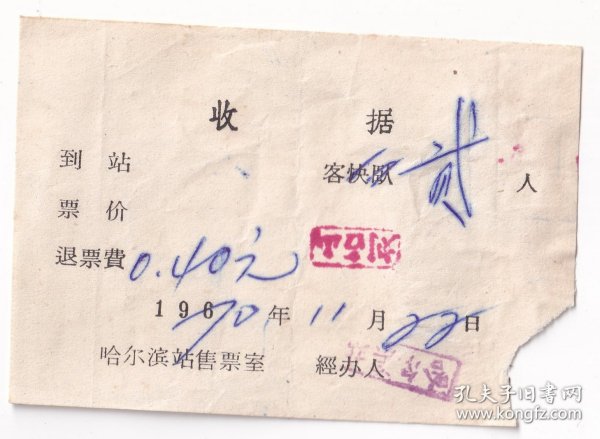 收 据
到 站 客快臥 贰 人
票 价
退票費 0.40元
196 70 年 11 月 22 日
哈尔滨站售票室 經办人
孔夫子旧书网
www.kongfz.com